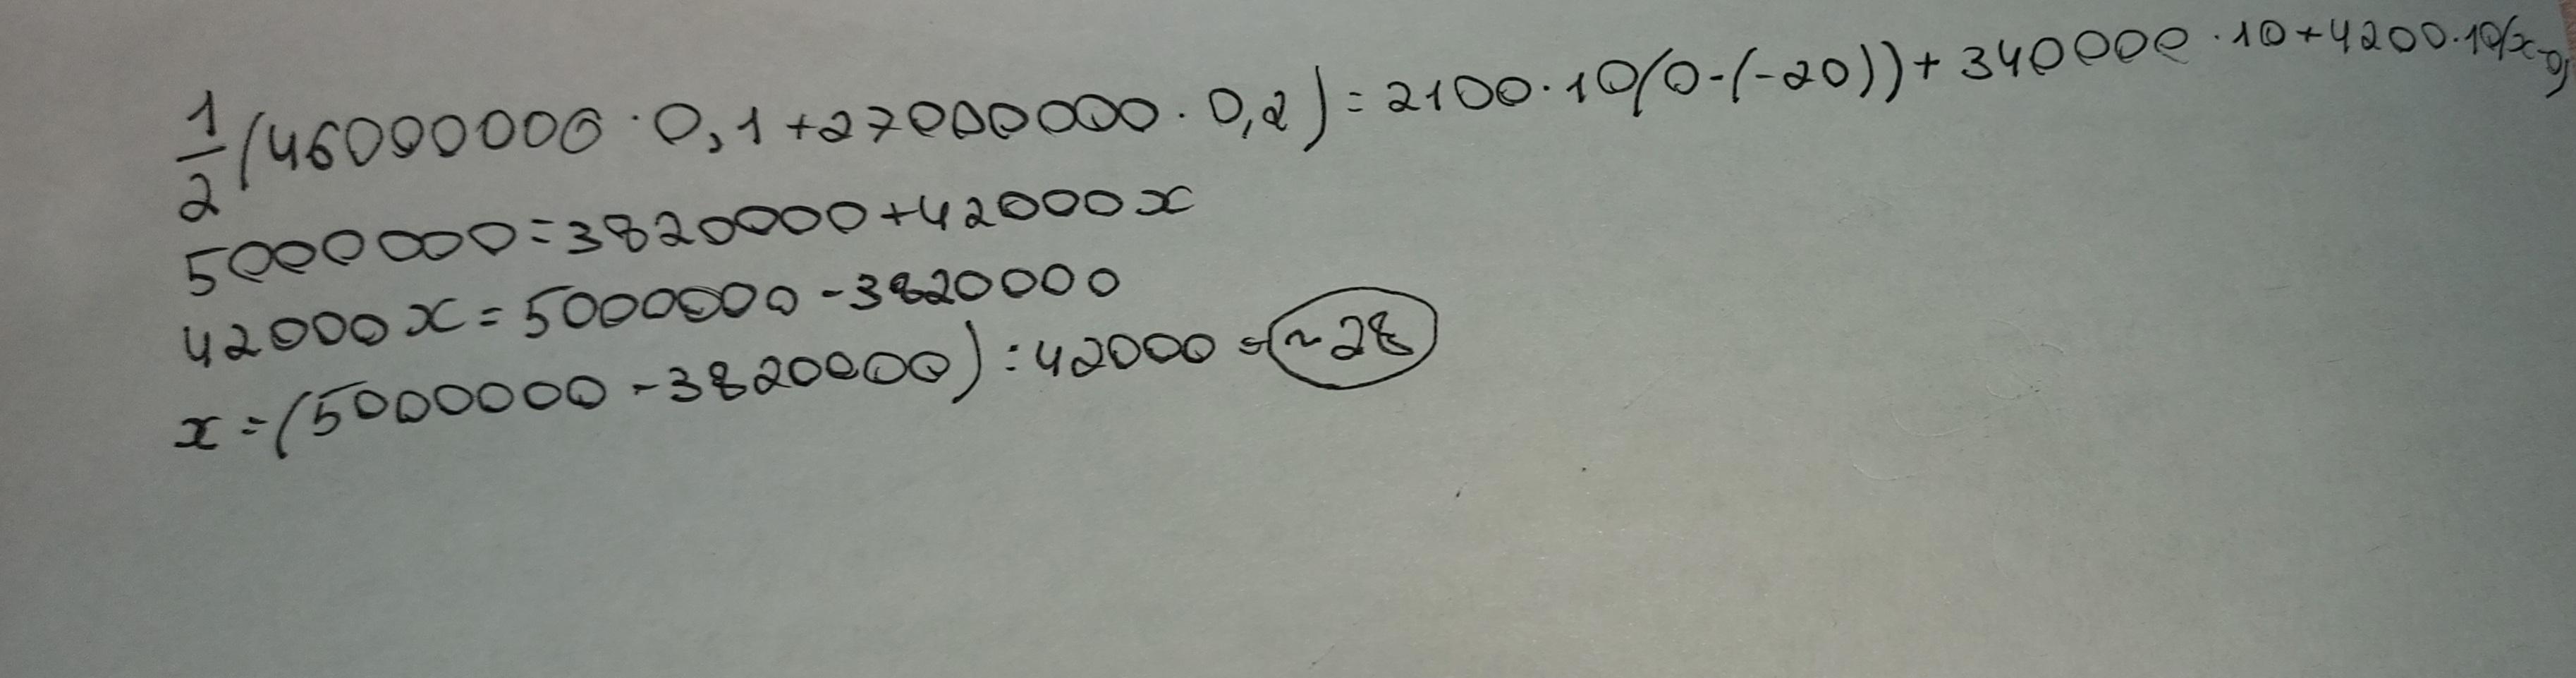 1/2 (46000000 · 0,1 + 27000000 · 0,2) = 2100 · 10(0-(-20)) + 340000 · 10 + 4200 · 10(x-0)
5000000 = 3820000 + 42000x
42000x = 5000000 - 3820000
x = (5000000 - 3820000) : 42000 = ~28